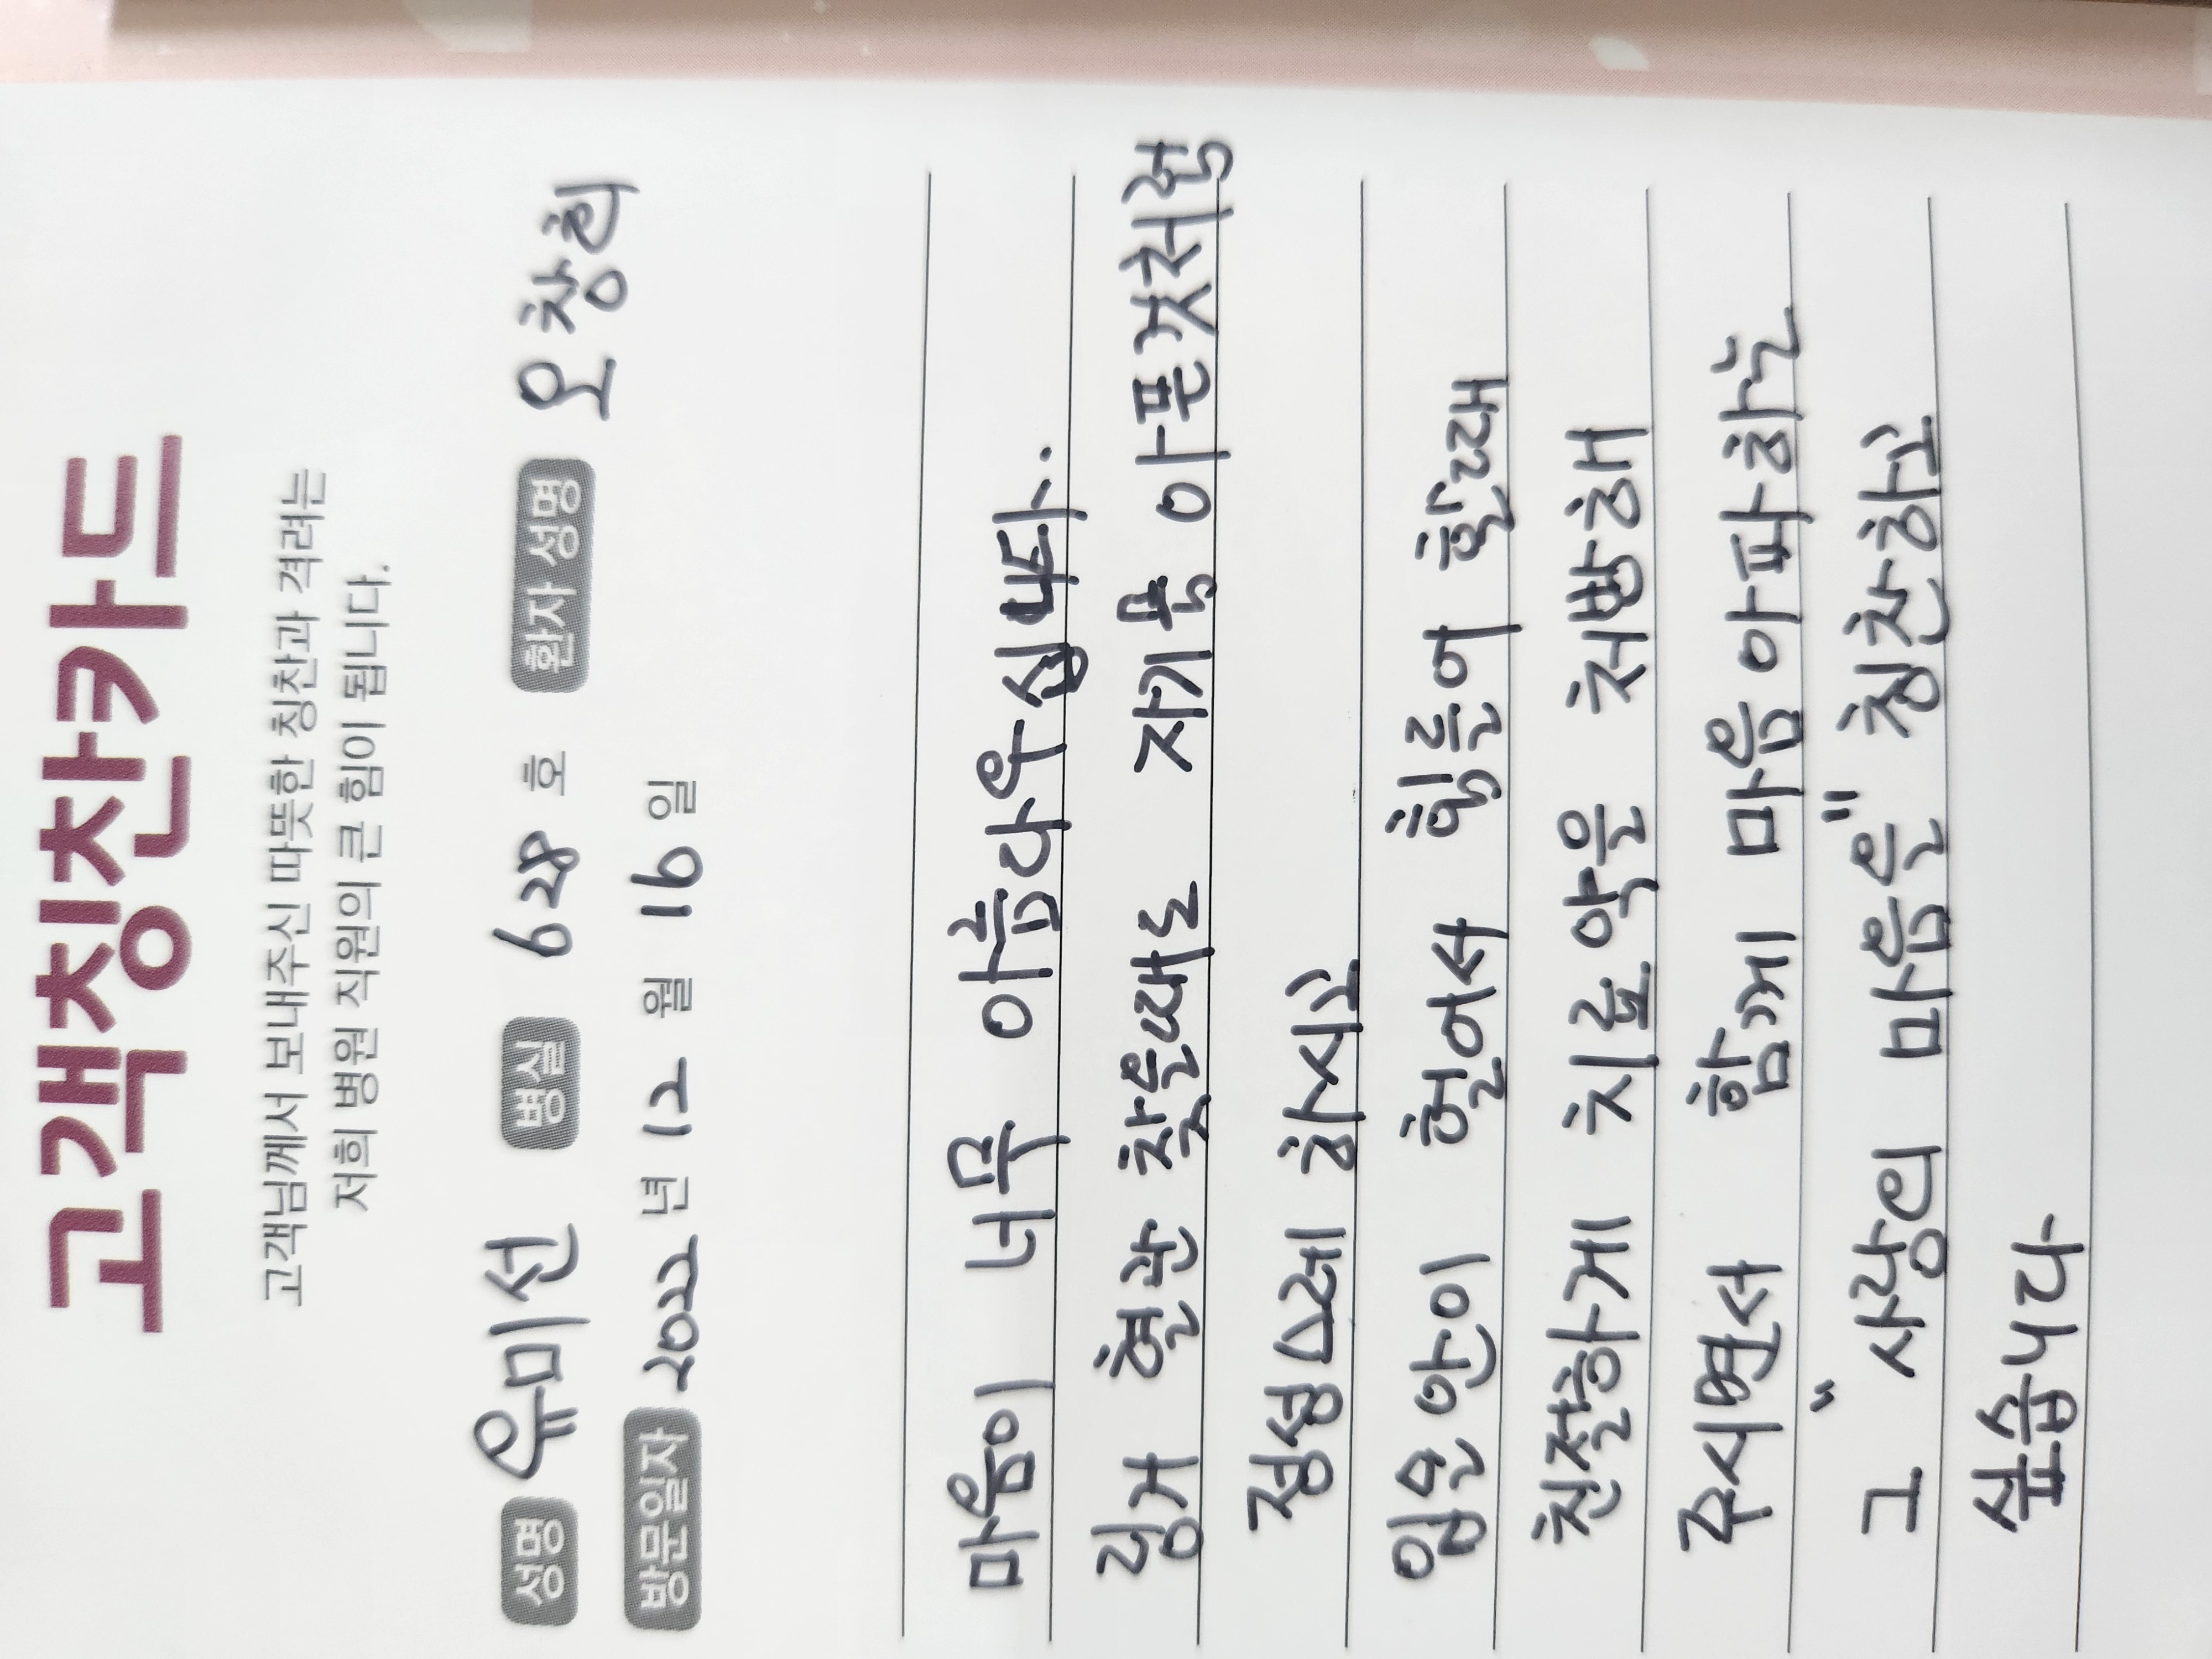 고객칭찬카드
고객님께서 보내주신 따뜻한 칭찬과 격려는
저희 병원 직원의 큰 힘이 됩니다.
성명 유미선 병실 628 호 환자 성명 오창희
방문일자 2022 년 12 월 16 일
마음이 너무 아름다우십니다.
링거 혈관 찾을때도 자기몸 아픈것처럼
정성스레 하시고
입몸안이 헐어서 힘들어 할때
친절하게 치료약을 처방해
주시면서 함께 마음아파하는
그 "사랑의 마음을" 칭찬하고
싶습니다